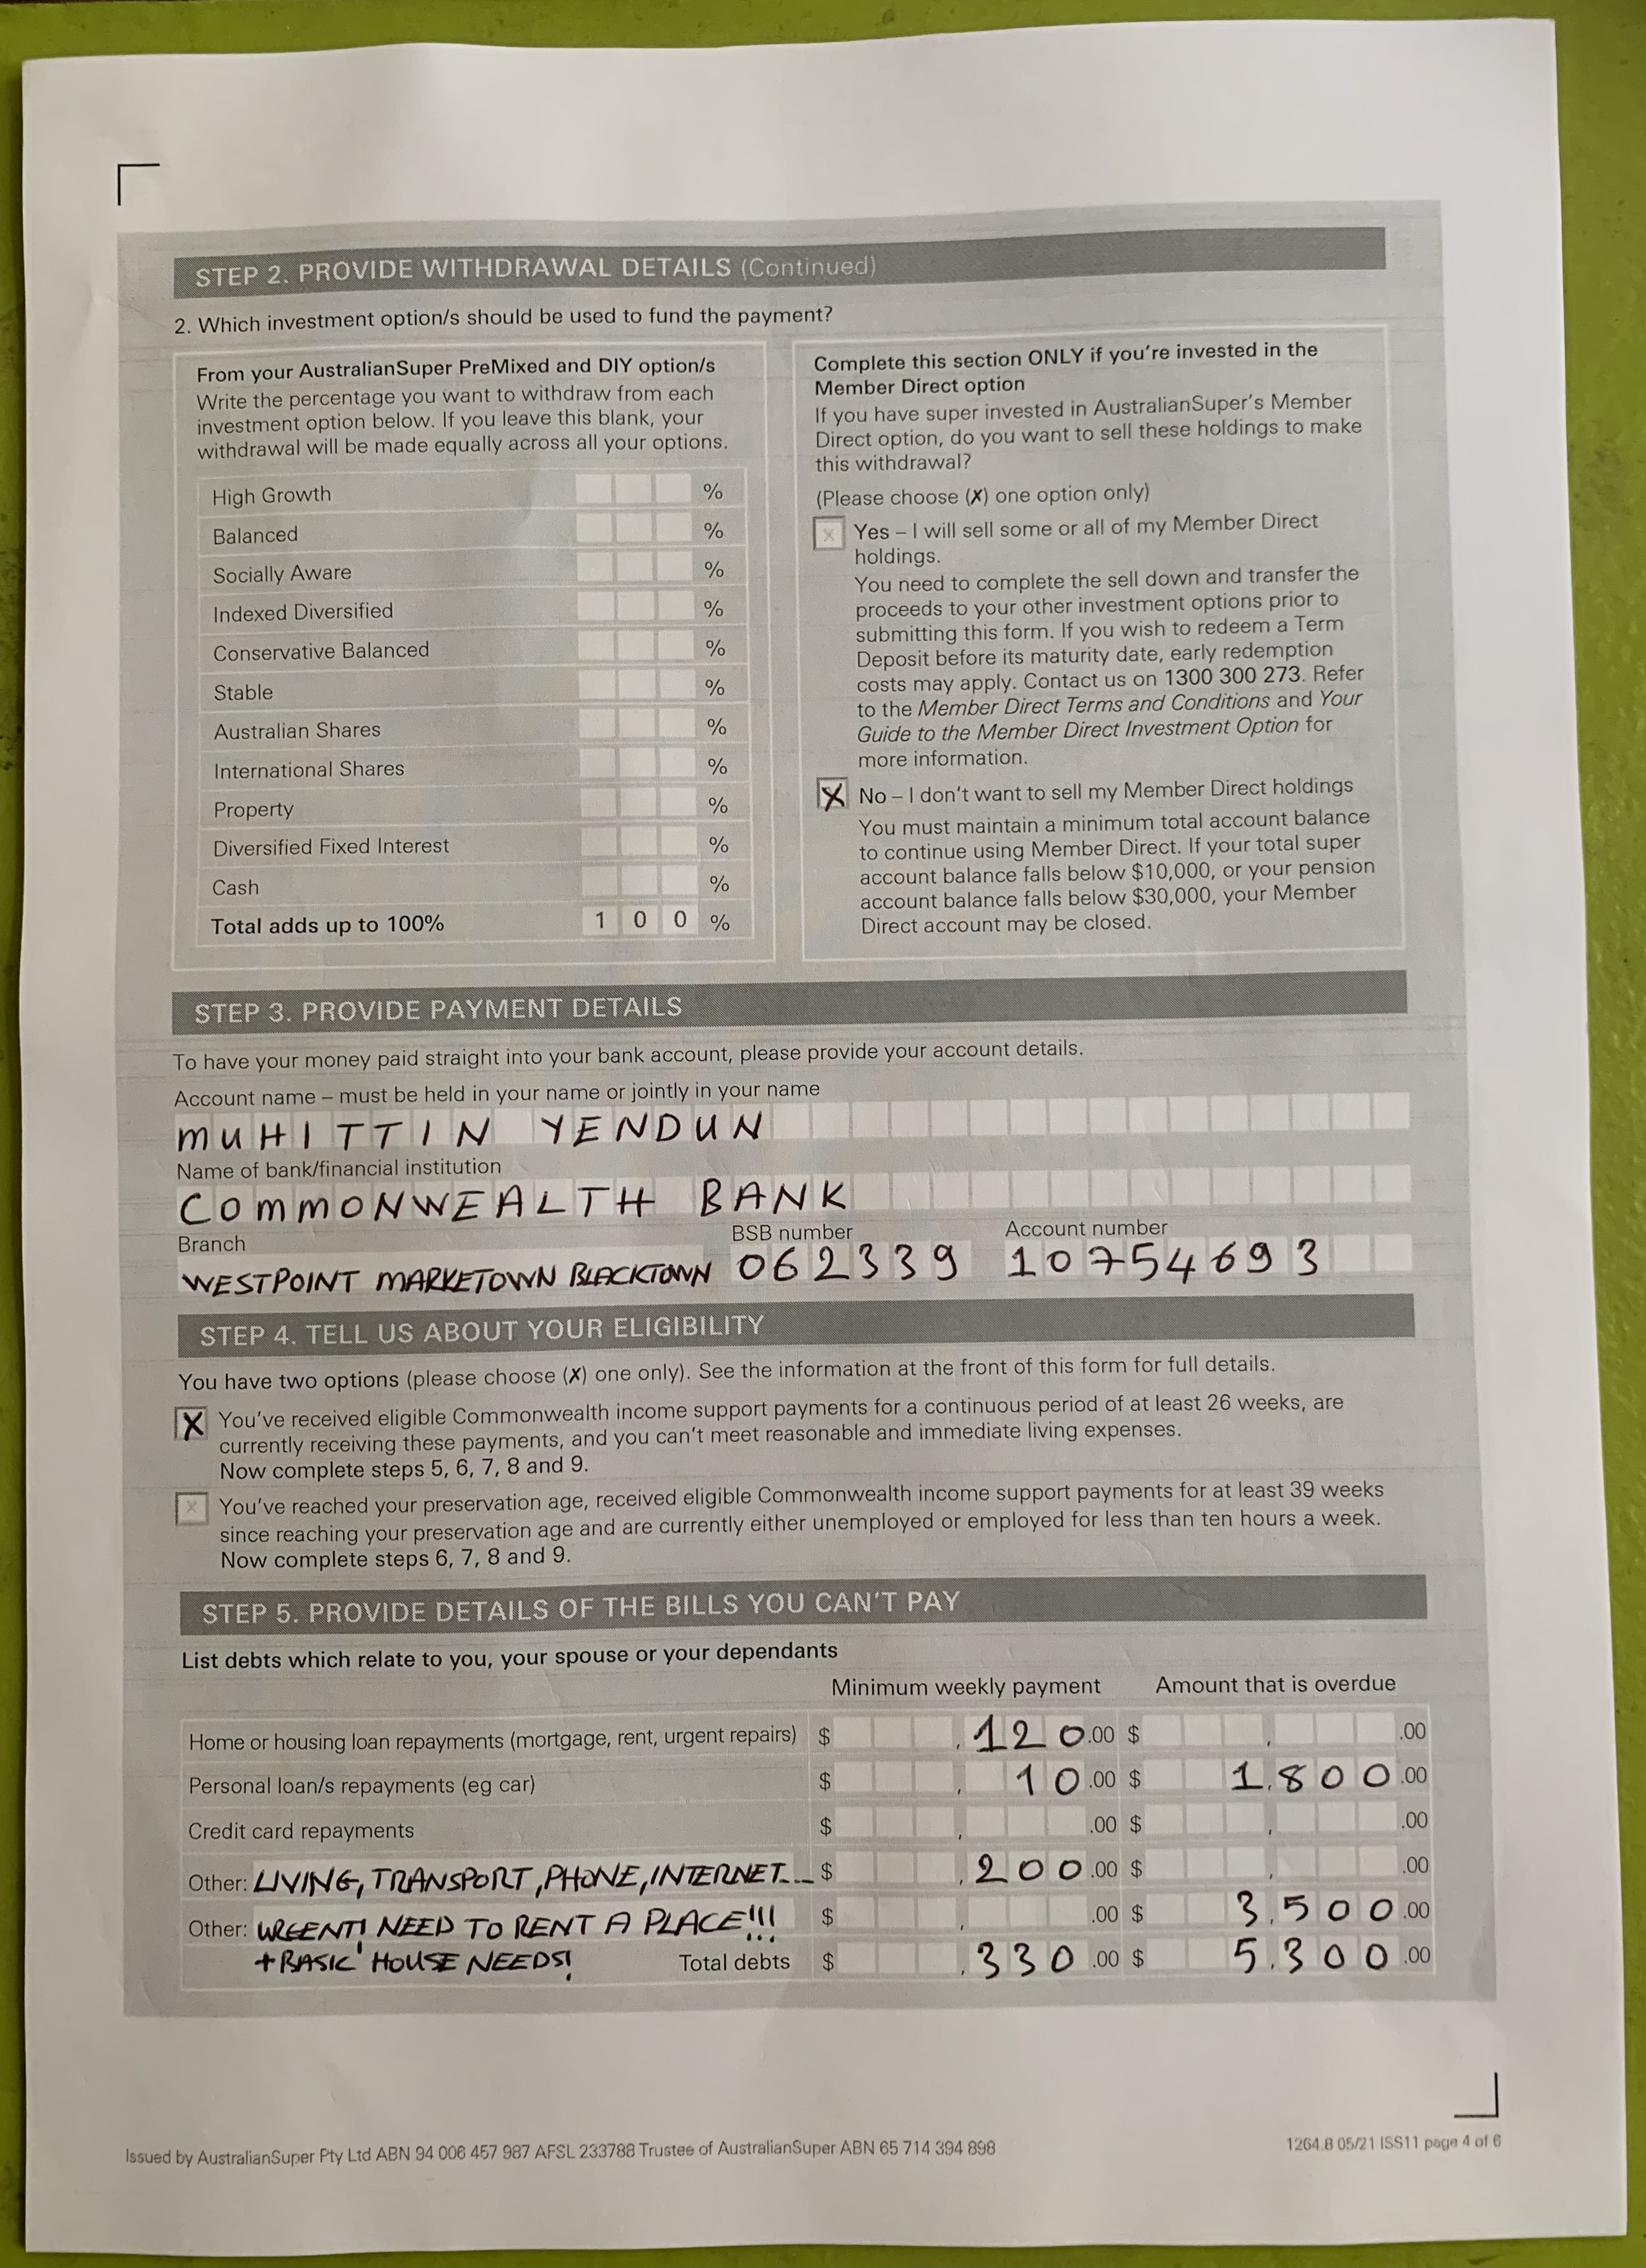 STEP 2. PROVIDE WITHDRAWAL DETAILS (Continued)
2. Which investment option/s should be used to fund the payment?
From your AustralianSuper PreMixed and DIY option/s
Write the percentage you want to withdraw from each
investment option below. If you leave this blank, your
withdrawal will be made equally across all your options.
High Growth %
Balanced %
Socially Aware %
Indexed Diversified %
Conservative Balanced %
Stable %
Australian Shares %
International Shares %
Property %
Diversified Fixed Interest %
Cash %
Total adds up to 100% 1 0 0 %
Complete this section ONLY if you're invested in the
Member Direct option
If you have super invested in AustralianSuper's Member
Direct option, do you want to sell these holdings to make
this withdrawal?
(Please choose (✗) one option only)
x Yes – I will sell some or all of my Member Direct
holdings.
You need to complete the sell down and transfer the
proceeds to your other investment options prior to
submitting this form. If you wish to redeem a Term
Deposit before its maturity date, early redemption
costs may apply. Contact us on 1300 300 273. Refer
to the Member Direct Terms and Conditions and Your
Guide to the Member Direct Investment Option for
more information.
X No – I don't want to sell my Member Direct holdings
You must maintain a minimum total account balance
to continue using Member Direct. If your total super
account balance falls below $10,000, or your pension
account balance falls below $30,000, your Member
Direct account may be closed.
STEP 3. PROVIDE PAYMENT DETAILS
To have your money paid straight into your bank account, please provide your account details.
Account name – must be held in your name or jointly in your name
MUHITTIN YENDUN
Name of bank/financial institution
COMMONWEALTH BANK
Branch BSB number Account number
WESTPOINT MARKETOWN BLACKTOWN 062339 10754693
STEP 4. TELL US ABOUT YOUR ELIGIBILITY
You have two options (please choose (✗) one only). See the information at the front of this form for full details.
X You've received eligible Commonwealth income support payments for a continuous period of at least 26 weeks, are
currently receiving these payments, and you can't meet reasonable and immediate living expenses.
Now complete steps 5, 6, 7, 8 and 9.
x You've reached your preservation age, received eligible Commonwealth income support payments for at least 39 weeks
since reaching your preservation age and are currently either unemployed or employed for less than ten hours a week.
Now complete steps 6, 7, 8 and 9.
STEP 5. PROVIDE DETAILS OF THE BILLS YOU CAN'T PAY
List debts which relate to you, your spouse or your dependants
Minimum weekly payment Amount that is overdue
Home or housing loan repayments (mortgage, rent, urgent repairs) $ ,120.00 $ , .00
Personal loan/s repayments (eg car) $ , 10.00 $ 1,800.00
Credit card repayments $ , .00 $ , .00
Other: LIVING, TRANSPORT, PHONE, INTERNET... $ ,200.00 $ , .00
Other: URGENT! NEED TO RENT A PLACE!!! $ , .00 $ 3,500.00
+ BASIC HOUSE NEEDS! Total debts $ ,330.00 $ 5,300.00
Issued by AustralianSuper Pty Ltd ABN 94 006 457 987 AFSL 233788 Trustee of AustralianSuper ABN 65 714 394 898
1264.8 05/21 ISS11 page 4 of 6